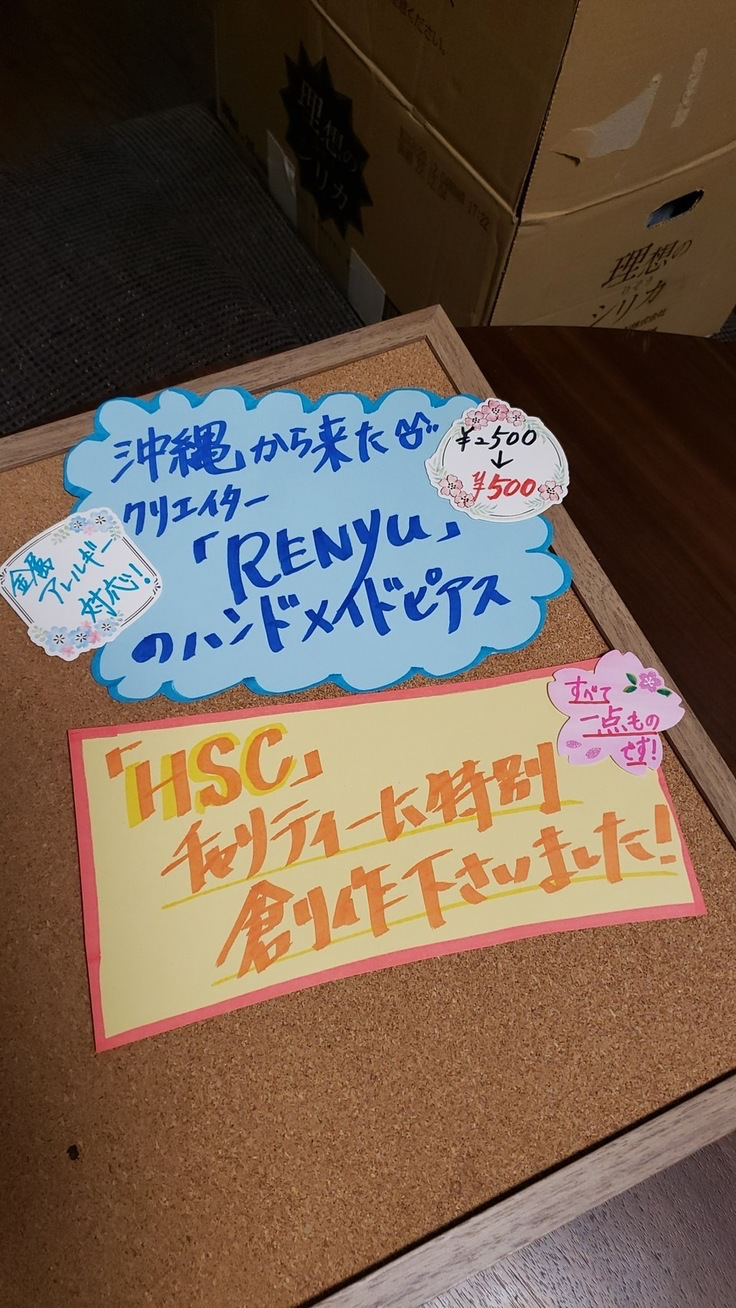 理想の
シリカ
理想の
シリカ
沖縄から来た
クリエイター
「RENYU」
のハンドメイドピアス
¥2500
↓
¥500
金属
アレルギー
対応!
「HSC」
チャリティーに特別
創り作下さいました!
すべて
一点もの
です!